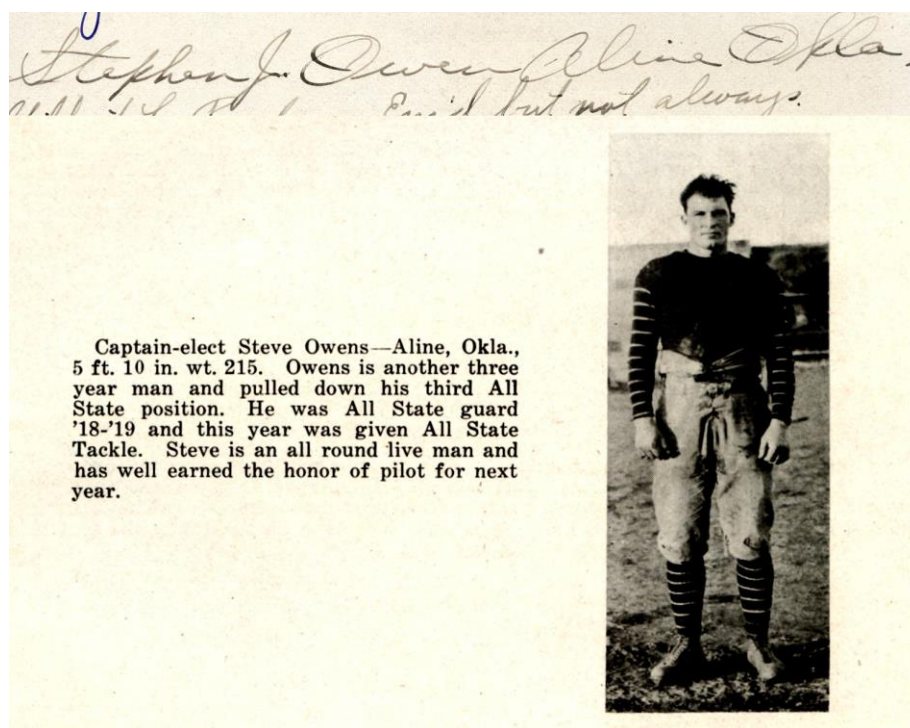 Stephen J. Owen Aline Okla.
Enid but not always.
Captain-elect Steve Owens—Aline, Okla.,
5 ft. 10 in. wt. 215. Owens is another three
year man and pulled down his third All
State position. He was All State guard
'18-'19 and this year was given All State
Tackle. Steve is an all round live man and
has well earned the honor of pilot for next
year.